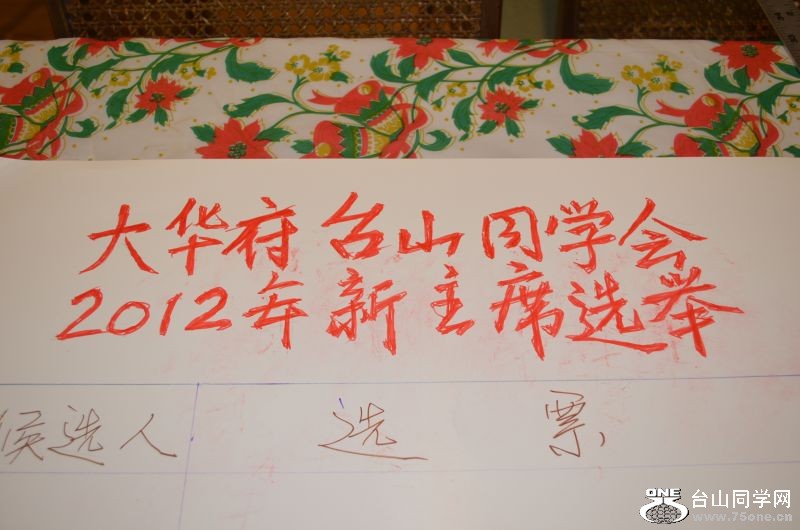 大华府台山同学会
2012年新主席选举
候选人 选 票
ONE 台山同学网
www.75one.cn